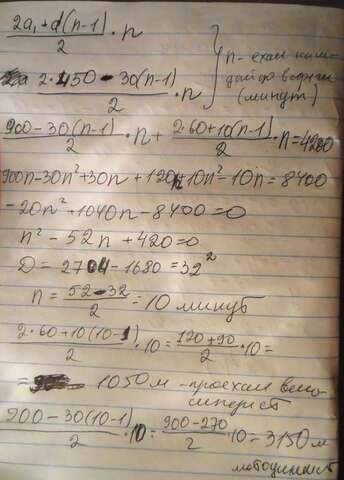 2a₁+d(n-1)/2 · n
2·450-30(n-1)/2 · n
n - ехал каж-
дый до встречи
(минут)
900-30(n-1)/2 · n + 2·60+10(n-1)/2 · n = 4200
900n-30n²+30n+120n+10n²-10n=8400
-20n²+1040n-8400=0
n²-52n+420=0
D=2704-1680=32²
n=52-32/2=10 минут
2·60+10(10-1)/2 · 10 = 120+90/2 · 10 =
= 1050 м - проехал вело-
сипедист
900-30(10-1)/2 · 10 = 900-270/2 · 10 = 3150 м
мотоциклист